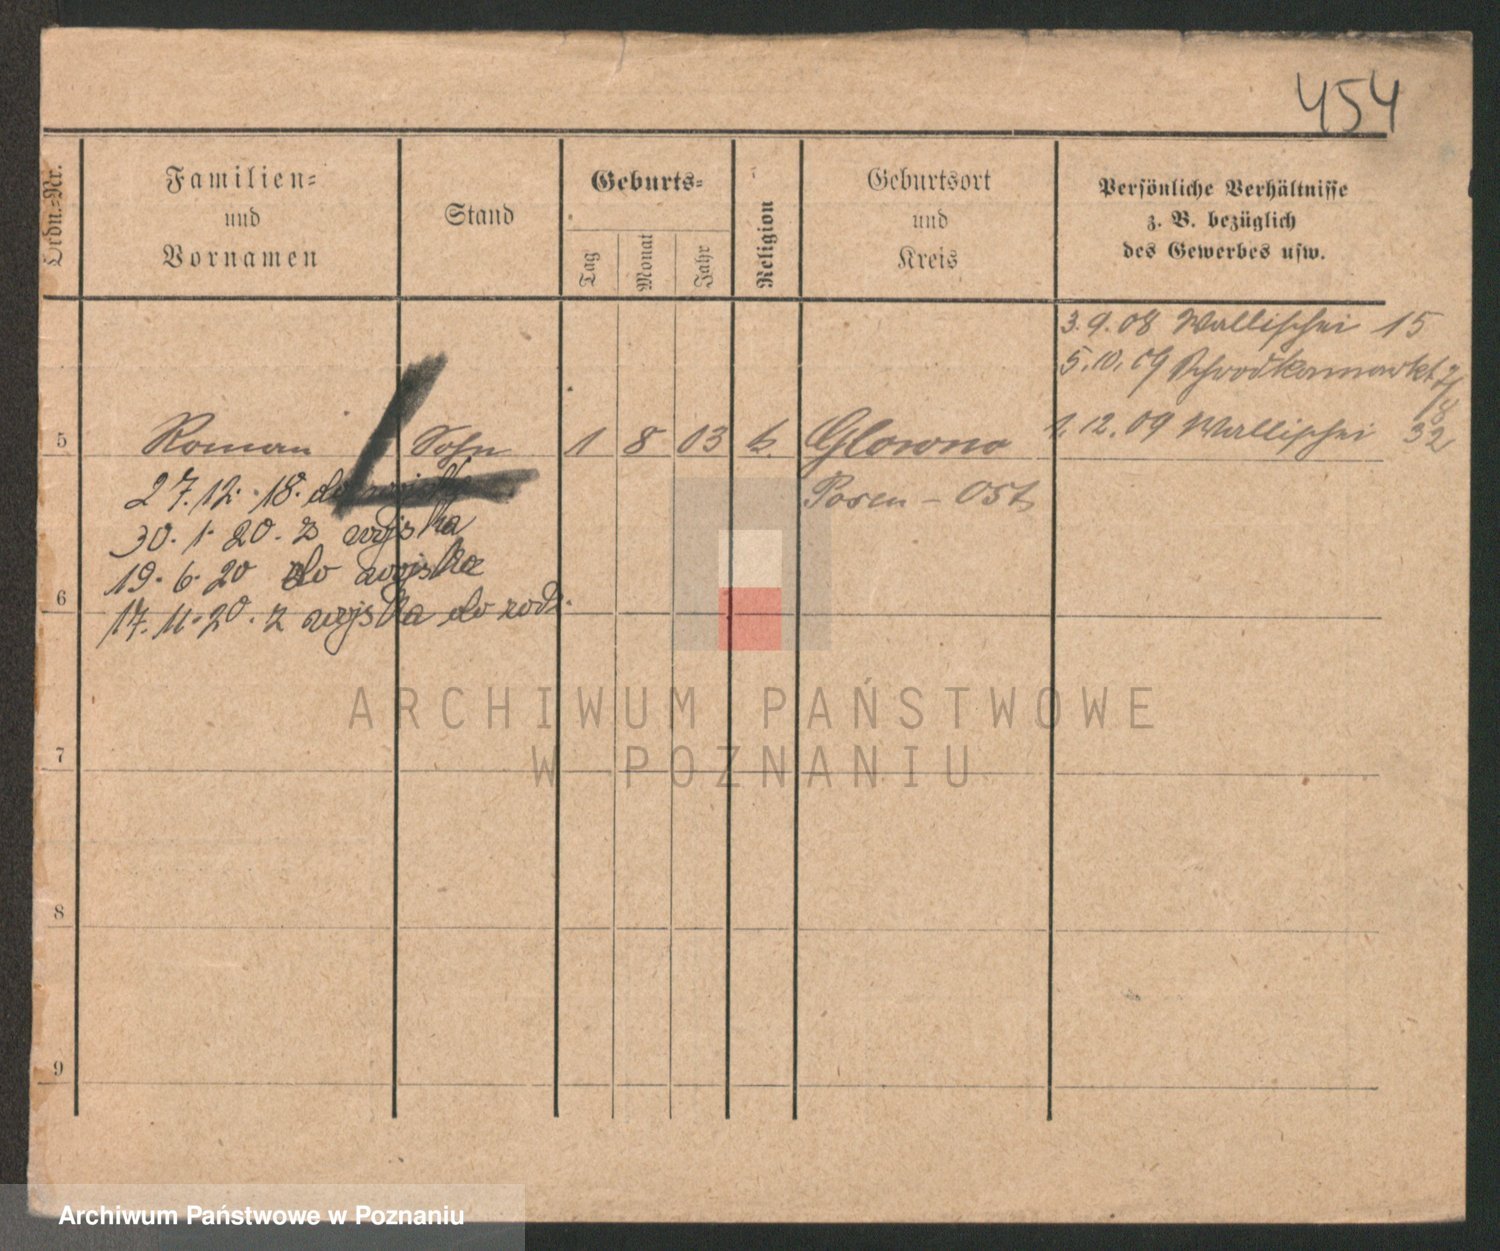 454
Ordn.-Nr.
Familien-
und
Vornamen
Stand
Geburts-
Tag
Monat
Jahr
Religion
Geburtsort
und
Kreis
Persönliche Verhältnisse
z. B. bezüglich
des Gewerbes usw.
3.9.08 Wallischei 15
5.10.09 Schrodkamarkt 7/18
5 Roman Sohn 1 8 03 k. Glowno 1.12.09 Wallischei 32
Posen - Ost
27.12.18. do wojska
30.1.20. z wojska
19.6.20 do wojska
6
17.11.20. z wojska do rodz.
7
8
9
ARCHIWUM PAŃSTWOWE
W POZNANIU
Archiwum Państwowe w Poznaniu